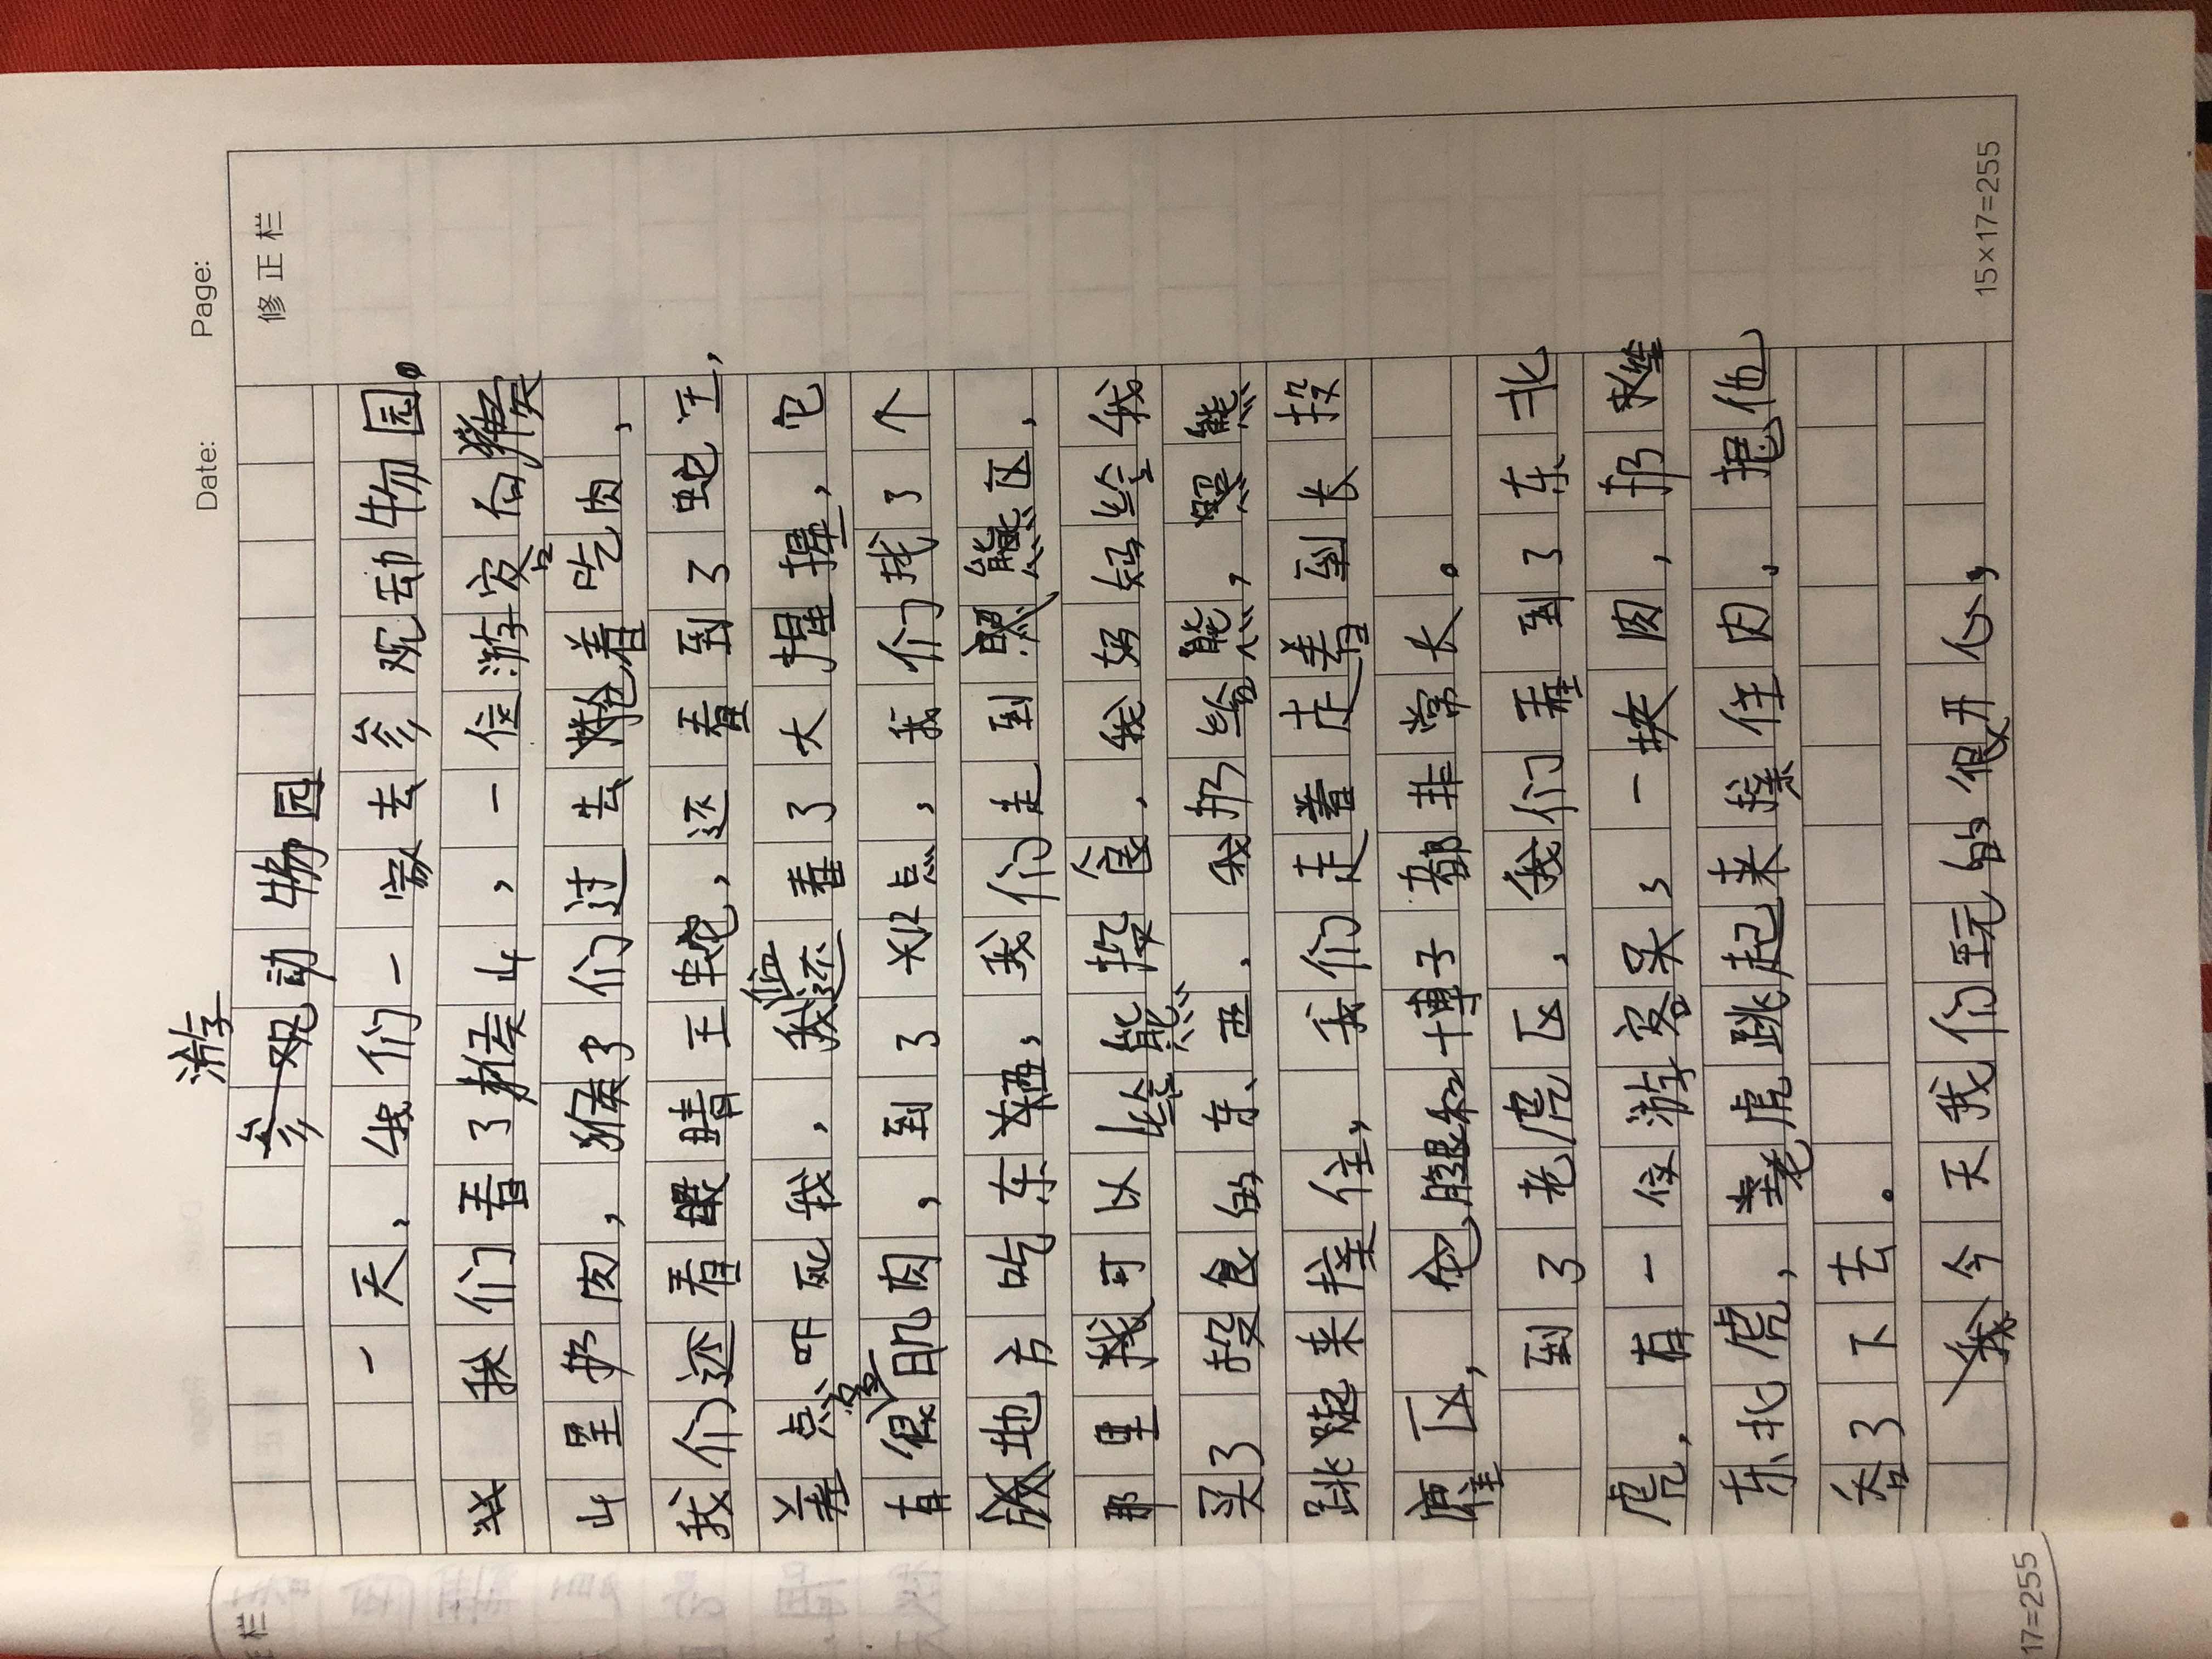 Date: Page:
修正栏
游
参观动物园
一天，我们一家去参观动物园。
我们看了猴山，一位游客向猴
山里扔肉，猴子们过去抢着吃肉，
我们还看眼睛王蛇，还看到了蛇王，
差点吓死我，我还看了大猩猩，它
有很肌肉，到了12点，我们找了个
地方吃东西，我们走到熊区，
那里可以给熊投食，我妈妈给我
买了投食的东西，我扔给熊，熊
跳起来接住，我们走着走着到长
区，腿和博子都非常长。
到了老虎区，我们到了东北
虎，有一位游客呆，一块肉，扔
东北虎，老虎跳起来接住肉，把他
吞了下去。
今天我们玩的很开心，
15×17=255
17=255